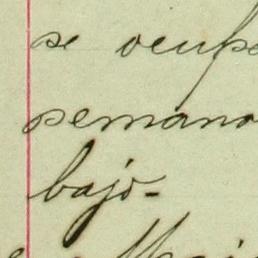 se ocupa
semana
bajo.